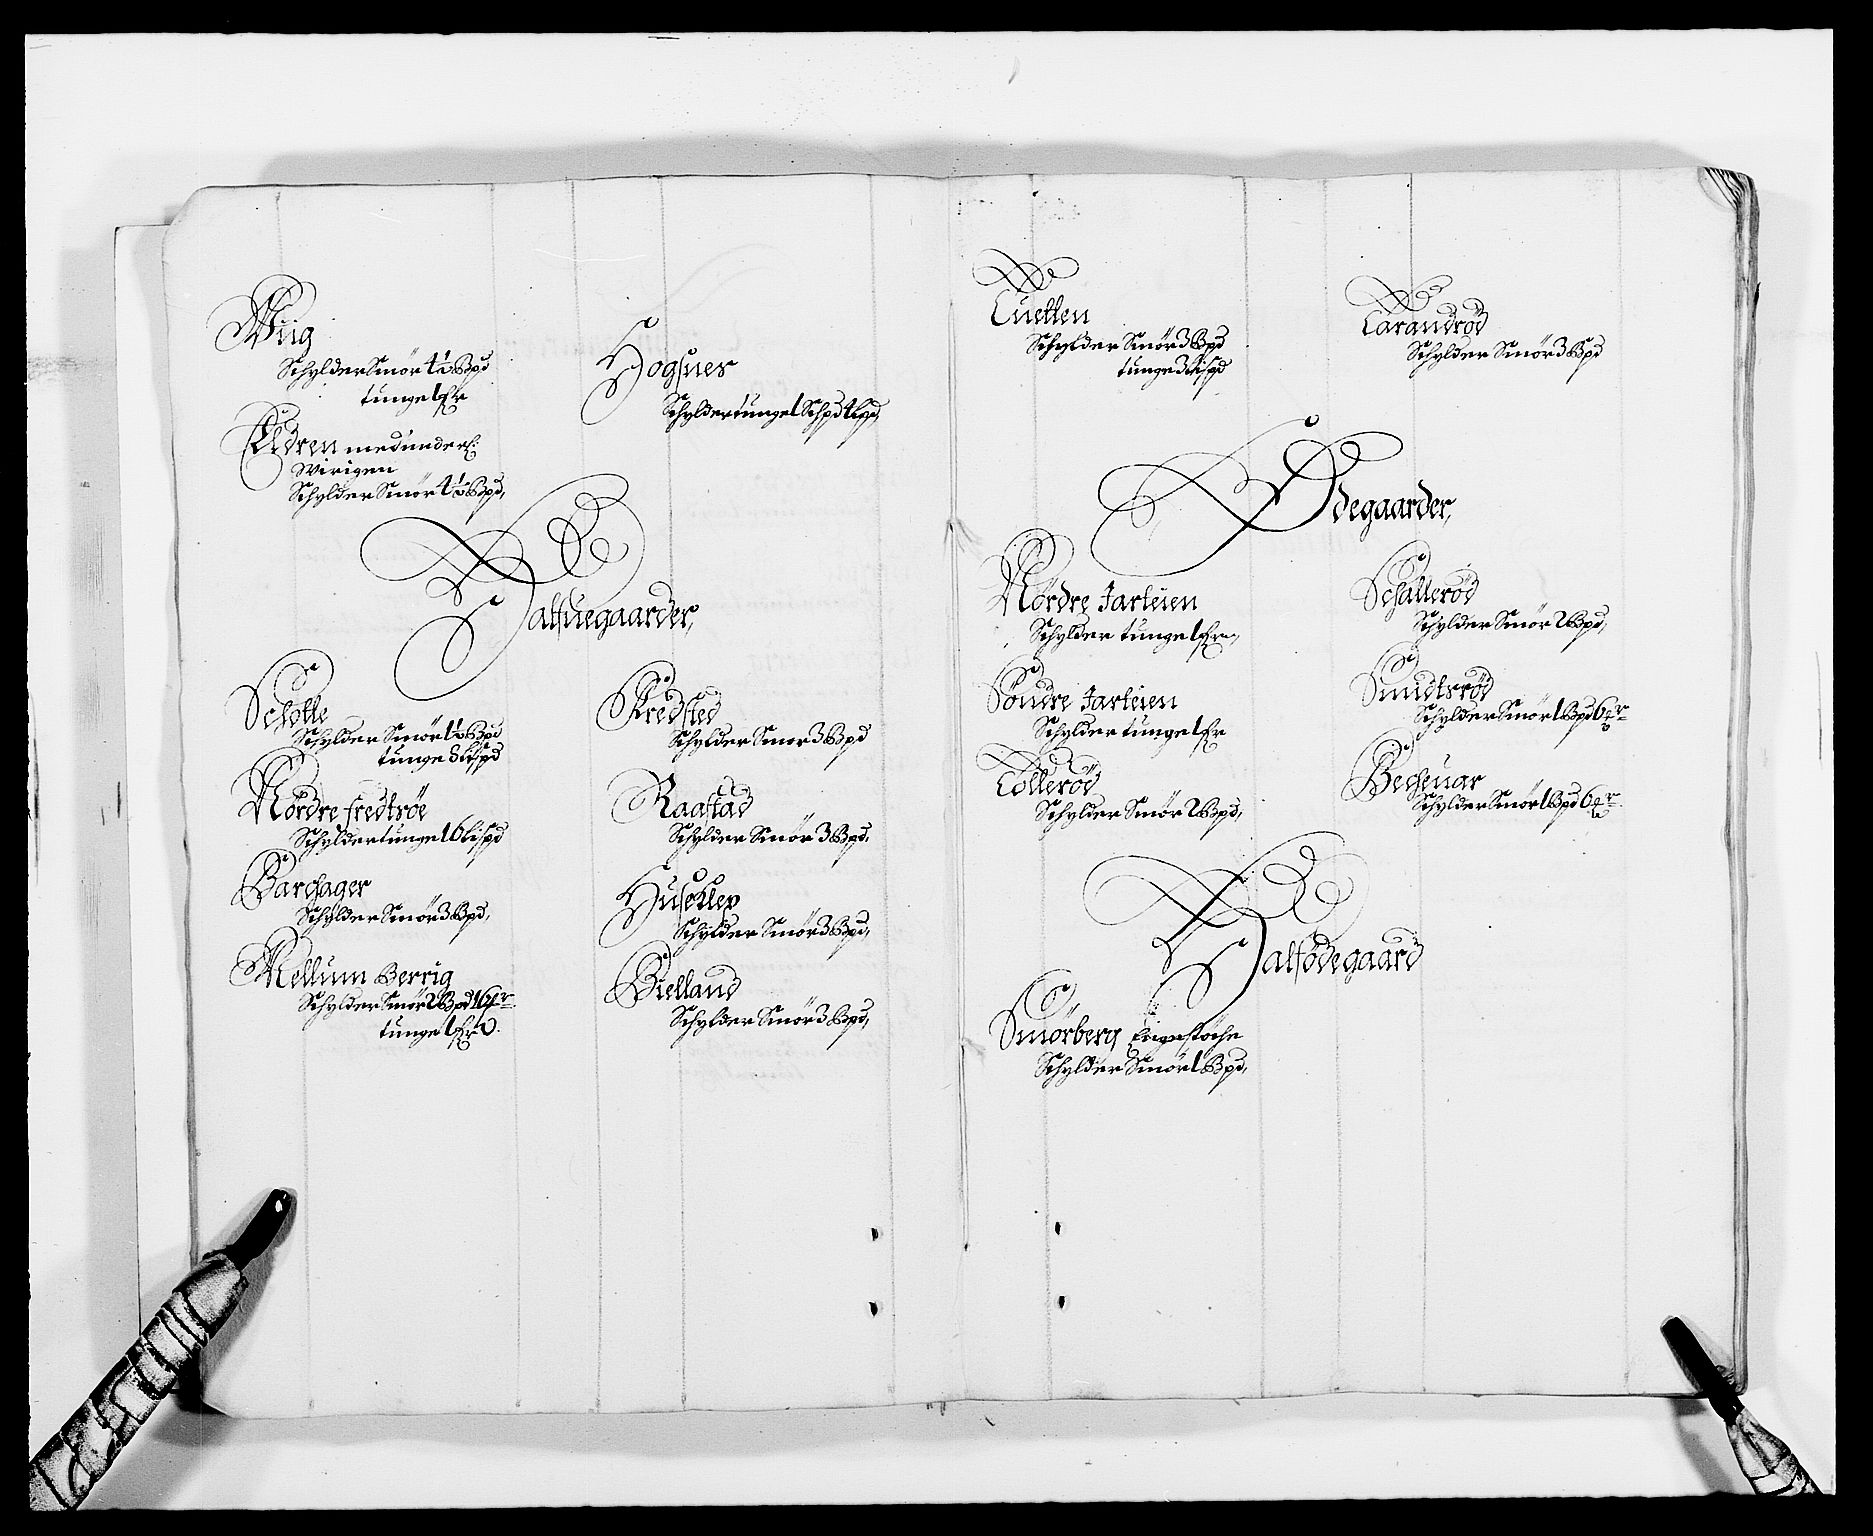 Wiig
Schylder Smör 4½ Bpd
tunge 1 fr
Eldren med underl:
Wirigen
Schylder Smör 4½ Bpd,
Hogsnes
Schylder tunge 1 Schpd 4 lpd,
Halfuegaarder,
Schotte
Schylder Smör 1½ Bpd
tunge 8 lispd
Nördre fredtröe
Schylder tunge 16 lispd
Barchager
Schylder Smör 3 Bpd,
Mellum Berrig
Schylder Smör 2 Bpd 16 mr
tunge 1 fr
Kredsted
Schylder Smör 3 Bpd
Raastad
Schylder Smör 3 Bpd.
Huseklep
Schylder Smör 3 Bpd,
Bielland
Schylder Smör 3 Bpd,
Tuetten
Schylder Smör 3 Bpd
tunge 3 lispd
Tarandröd
Schylder Smör 3 Bpd
Ödegaarder,
Nördre Jarteien
Schylder tunge 1 fr
Söndre Jarteien
Schylder tunge 1 fr
Tolleröd
Schylder Smör 2 Bpd,
Schalleröd
Schylder Smör 2 Bpd,
Smidtsröd
Schylder Smör 1 Bpd 6 mr
Becheuar
Schylder Smör 1 Bpd 6 mr
Halfödegaard
Smörberg Engestöche
Schylder Smör 1 Bpd,